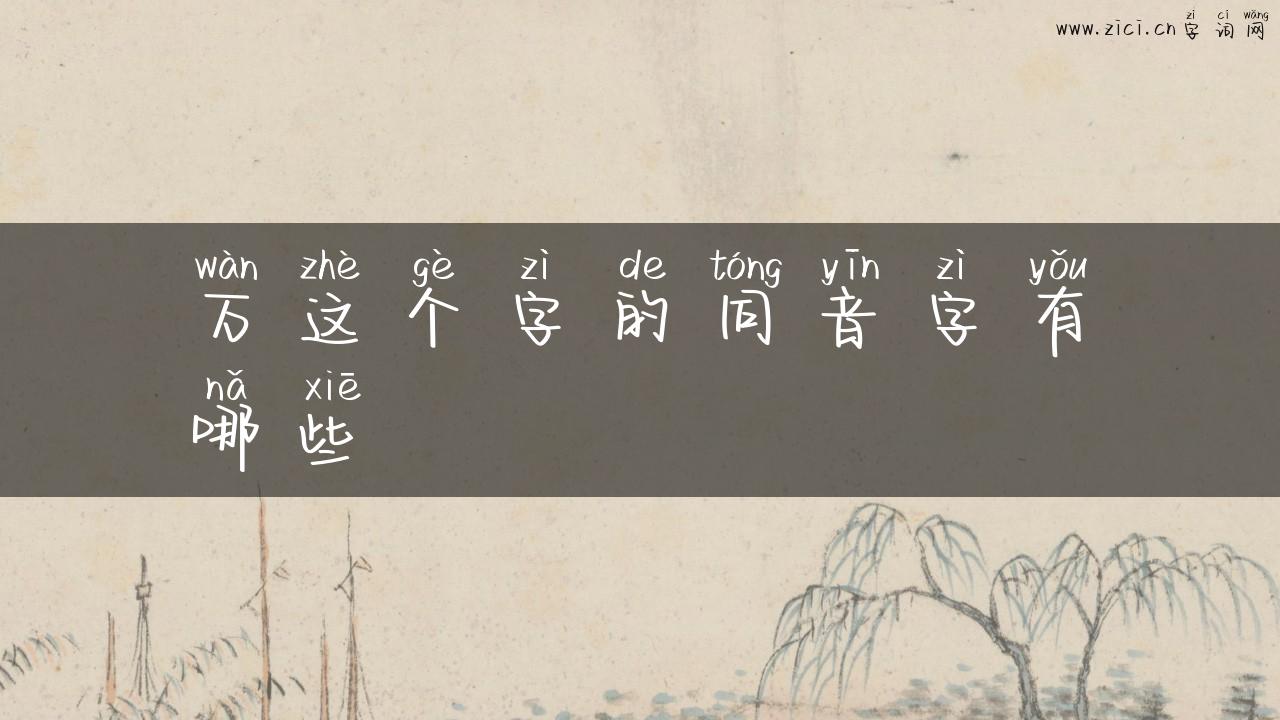 zì cí wǎng
www.zici.cn 字词网
wàn zhè gè zì de tóng yīn zì yǒu
万这个字的同音字有
nǎ xiē
哪些